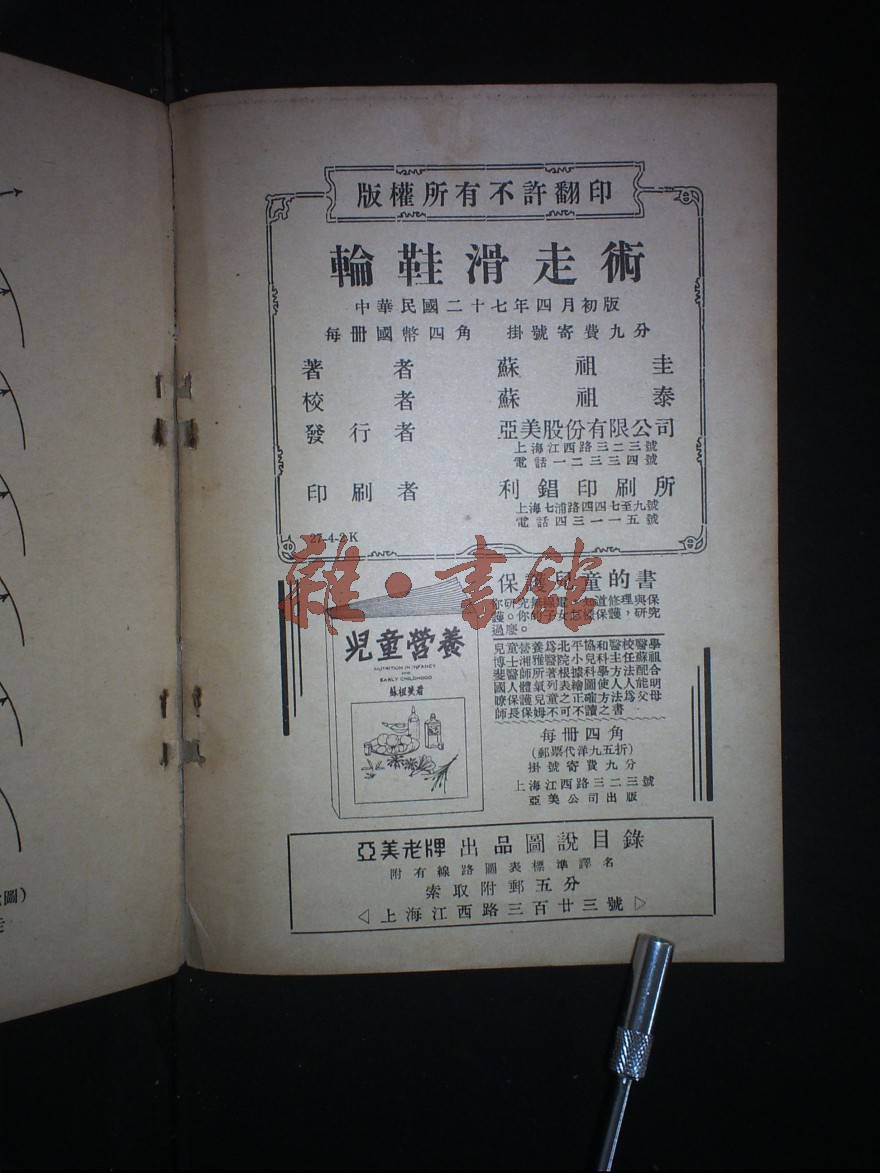 版權所有不許翻印
輪鞋滑走術
中華民國二十七年四月初版
每冊國幣四角 掛號寄費九分
著者 蘇祖圭
校者 蘇祖泰
發行者 亞美股份有限公司
上海江西路三二三號
電話一二三三四號
印刷者 利錩印刷所
上海七浦路四四七至九號
電話四三一一五號
27-4-2.K
雜·書館
保護兒童的書
你研究無線電,知道修理與保
護。你的子女怎樣保護,研究
過麼。
兒童營養
NUTRITION IN INFANCY
AND
EARLY CHILDHOOD
蘇祖斐著
兒童營養爲北平協和醫校醫學
博士湘雅醫院小兒科主任蘇祖
斐醫師所著根據科學方法配合
國人體氣列表繪圖使人人能明
瞭保護兒童之正確方法爲父母
師長保姆不可不讀之書
每冊四角
(郵票代洋九五折)
掛號寄費九分
上海江西路三二三號
亞美公司出版
亞美老牌出品圖說目錄
附有線路圖表標準譯名
索取附郵五分
◁上海江西路三百廿三號▷
圖)